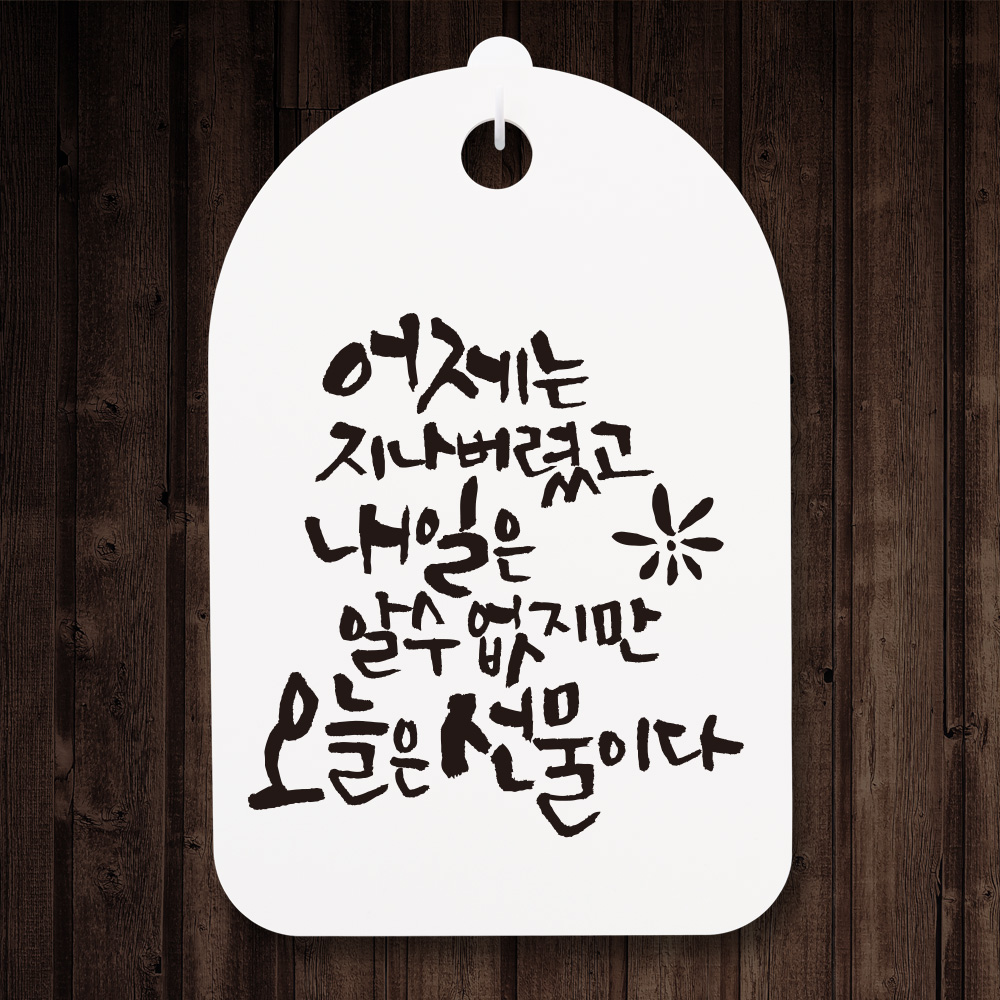 어제는
지나버렸고
내일은
알수 없지만
오늘은 선물이다